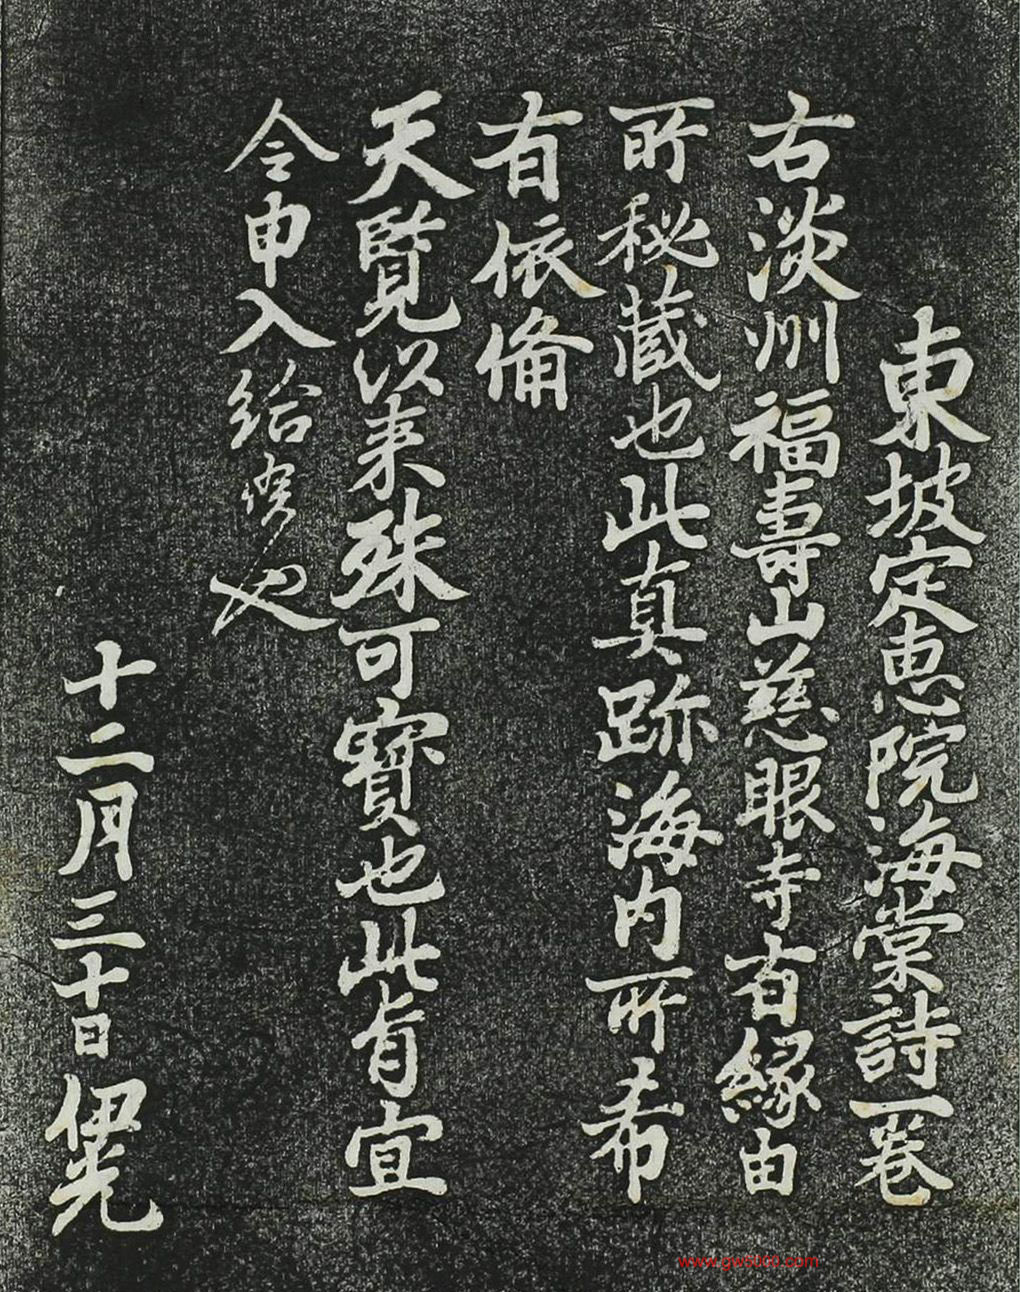 東坡定恵院海棠詩一巻
右淡州福壽山慈眼寺有縁由
所秘蔵也此真跡海内所希
有依備
天覧以来殊可寶也此旨宜
令申入給 也
十二月三十日 伊光
www.gw8000.com